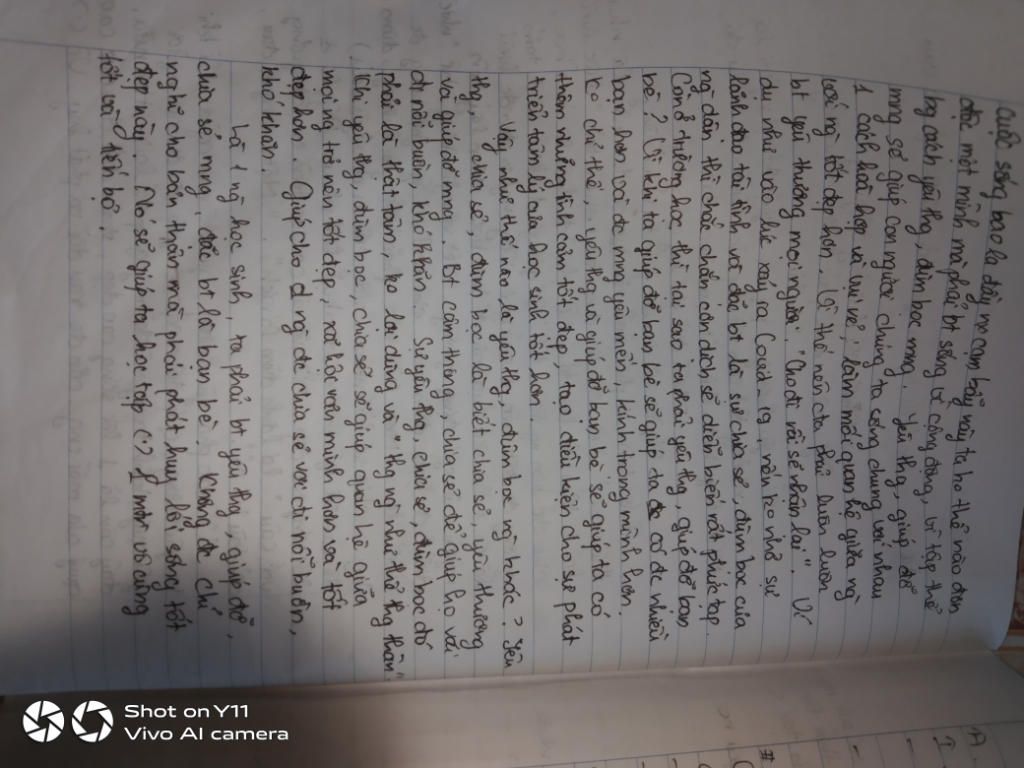 Cuộc sống bao la đầy rẫy cạm bẫy này ta ko thể nào đơn
độc một mình mà phải bt sống vì cộng đồng, vì tập thể
bg cách yêu thg, đùm bọc mng. Yêu thg, giúp đỡ
mng sẽ giúp con người chúng ta sống chung với nhau
1 cách hoà hợp và vui vẻ, làm mối quan hệ giữa ng
với ng tốt đẹp hơn. Vì thế nên cta phải luôn luôn
bt yêu thương mọi người. "Cho đi rồi sẽ nhận lại". Ví
dụ như vào lúc xảy ra Covid-19, nếu ko nhờ sự
lãnh đạo tài tình và đặc bt là sự chia sẻ, đùm bọc của
ng dân thì chắc chắn còn dịch sẽ diễn biến rất phức tạp.
Còn ở trường học thì tại sao ta phải yêu thg, giúp đỡ bạn
bè? Vì khi ta giúp đỡ bạn bè sẽ giúp ta có đc nhiều
bạn hơn và đc mng yêu mến, kính trọng mình hơn.
Ko chỉ thế, yêu thg và giúp đỡ bạn bè sẽ giúp ta có
thêm những tình cảm tốt đẹp, tạo điều kiện cho sự phát
triển tâm lý của học sinh tốt hơn.
Vậy như thế nào là yêu thg, đùm bọc ng khác? Yêu
thg, chia sẻ, đùm bọc là biết chia sẻ, yêu thương
và giúp đỡ mng. Bt cảm thông, chia sẻ để giúp họ vơi
đi nỗi buồn, khó khăn. Sự yêu thg, chia sẻ, đùm bọc đó
phải là thật tâm, ko lợi dụng và "thg ng như thể thg thân".
Khi yêu thg, đùm bọc, chia sẻ sẽ giúp quan hệ giữa
mọi ng trở nên tốt đẹp, xã hội văn minh hơn và tốt
đẹp hơn. Giúp cho ng đc chia sẻ vơi đi nỗi buồn,
khó khăn.
Là 1 ng học sinh, ta phải bt yêu thg, giúp đỡ,
chia sẻ mng, đặc bt là bạn bè. Không đc chỉ
nghĩ cho bản thân mà phải phát huy lối sống tốt
đẹp này. Nó sẽ giúp ta học tập 1 môi vô cùng
tốt và tiến bộ.
Shot on Y11
Vivo AI camera